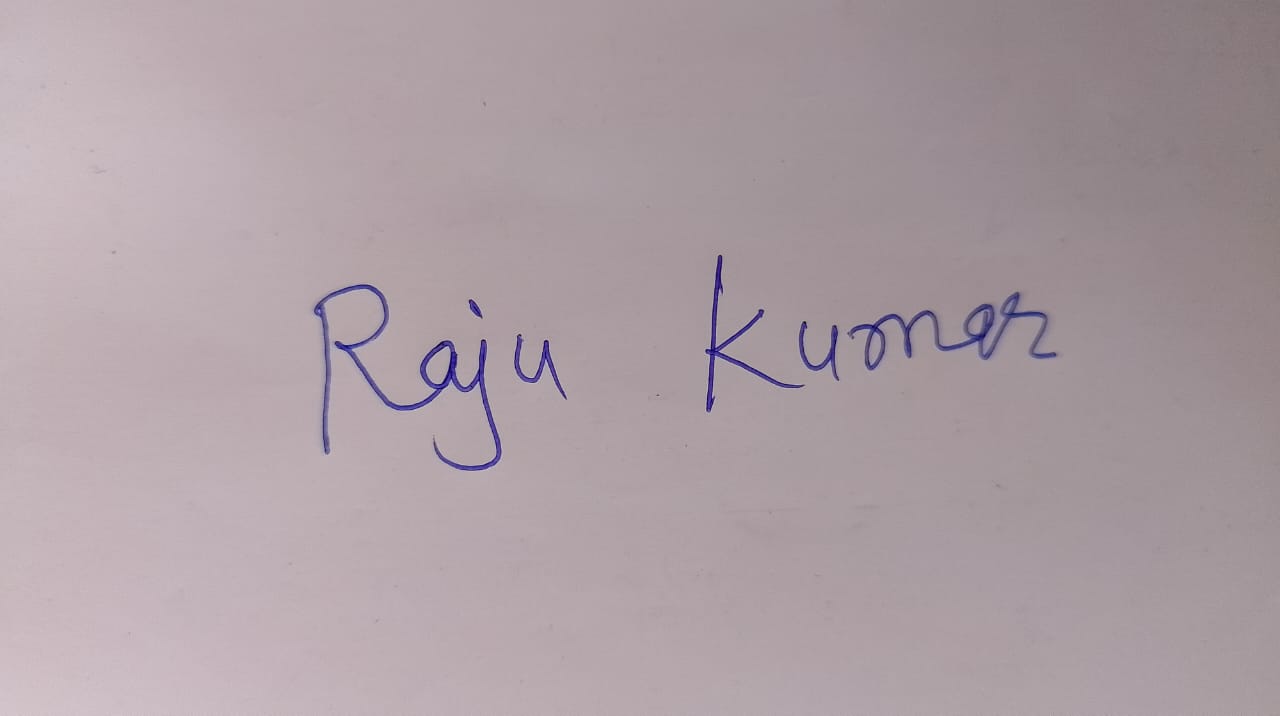 Raju Kumar